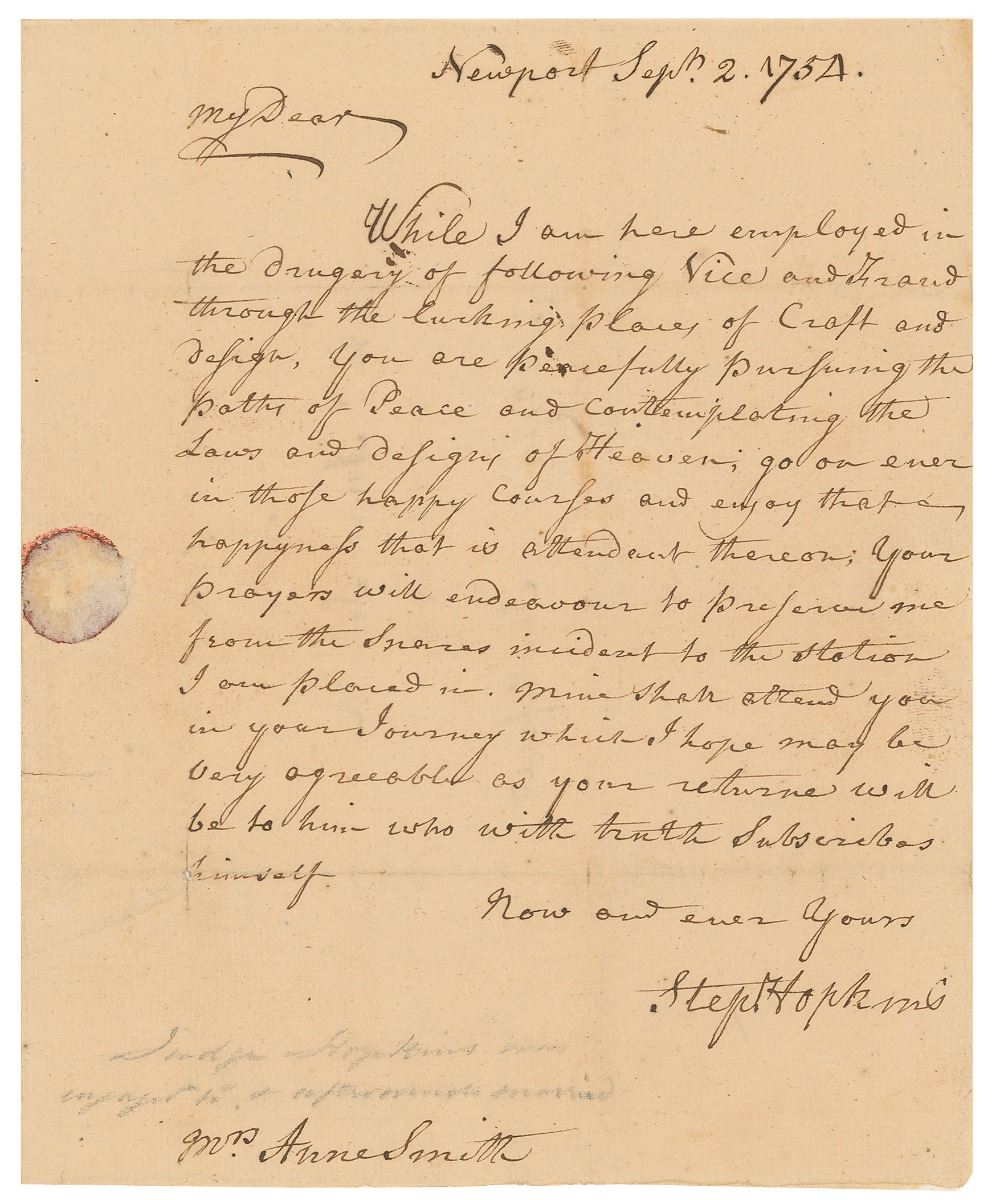 Newport Sepr. 2. 1754.
My Dear
While I am here employed in
the drugery of following Vice and Fraud
through the lurking places of Craft and
design, You are peacefully pursuing the
paths of Peace and Contemplating the
Laws and designs of Heaven; go on ever
in those happy Courses and enjoy that
happyness that is attendant thereon; Your
prayers will endeavour to preserve me
from the Snares incident to the Station
I am placed in. Mine shall attend you
in your Journey which I hope may be
very agreeable as your returne will
be to him who with truth Subscribes
himself
Now and ever Yours
Step. Hopkins
Judge Hopkins was
engaged to, & afterwards married
Mrs. Anne Smith